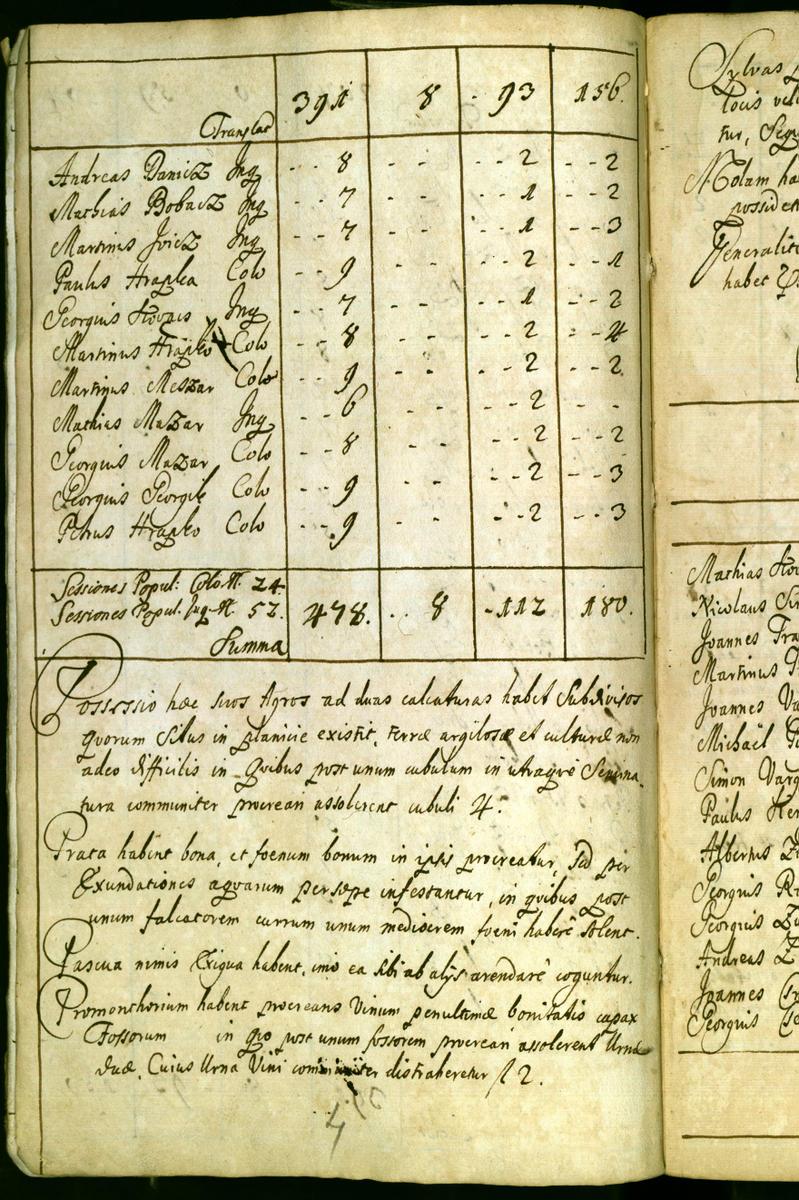 Translat 391 8 - 93 156.
Andreas Danicz Inq - - 8 - - - - 2 - - 2
Mathias Bobacz Inq - - 7 - - - - 1 - - 2
Martinus Ivicz Inq - - 7 - - - - 1 - - 3
Paulus Hrapka Colo - - 9 - - - - 2 - - 1
Georgius Kovacs Inq - - 7 - - - - 1 - - 2
Martinus Hrapko Colo - - 8 - - - - 2 - - 4
Martinus Meszar Colo - - 9 - - - - 2 - - 2
Mathias Mazar Inq - - 6 - - - - 2 - -
Georgius Mazar Colo - - 8 - - - - 2 - - 2
Georgius Georgik Colo - - 9 - - - - 2 - - 3
Petrus Hrapko Colo - - 9 - - - - 2 - - 3
Sessiones Popul: Colo. 24.
Sessiones Popul. Inq. 52. 478. . . 8 - 112 180.
Summa
Possessio haec suos Agros ad duas calcaturas habet Subdivisos
quorum Situs in planicie existit, terrae argilosae et culturae non
adeo difficilis in quibus post unum cubulum in utraque Semina
tura communiter procreari assolerent cubuli 4.
Prata habent bona, et foenum bonum in ipsis procreatur, sed per
Exundationes aquarum persaepe infestantur, in quibus post
unum falcatorem currum unum mediocrem foeni habere solent.
Pascua nimis Exigua habent, imo ea sibi ab alys arendare coguntur.
Promonthorium habent procreans Vinum penultimae bonitatis capax
Fossorum in quo post unum fossorem procreari assolerent Urnae
duae. Cuius Urna Vini communiter distraheretur f 2.
Sylvas
locis
tur, Sequ
Molam ha
possident
Generalit
habet
Mathias
Nicolaus
Joannes Fra
Martinus
Joannes Va
Michaël
Simon Varg
Paulus
Albertus
Georgius
Georgius
Andreas
Joannes
Georgius